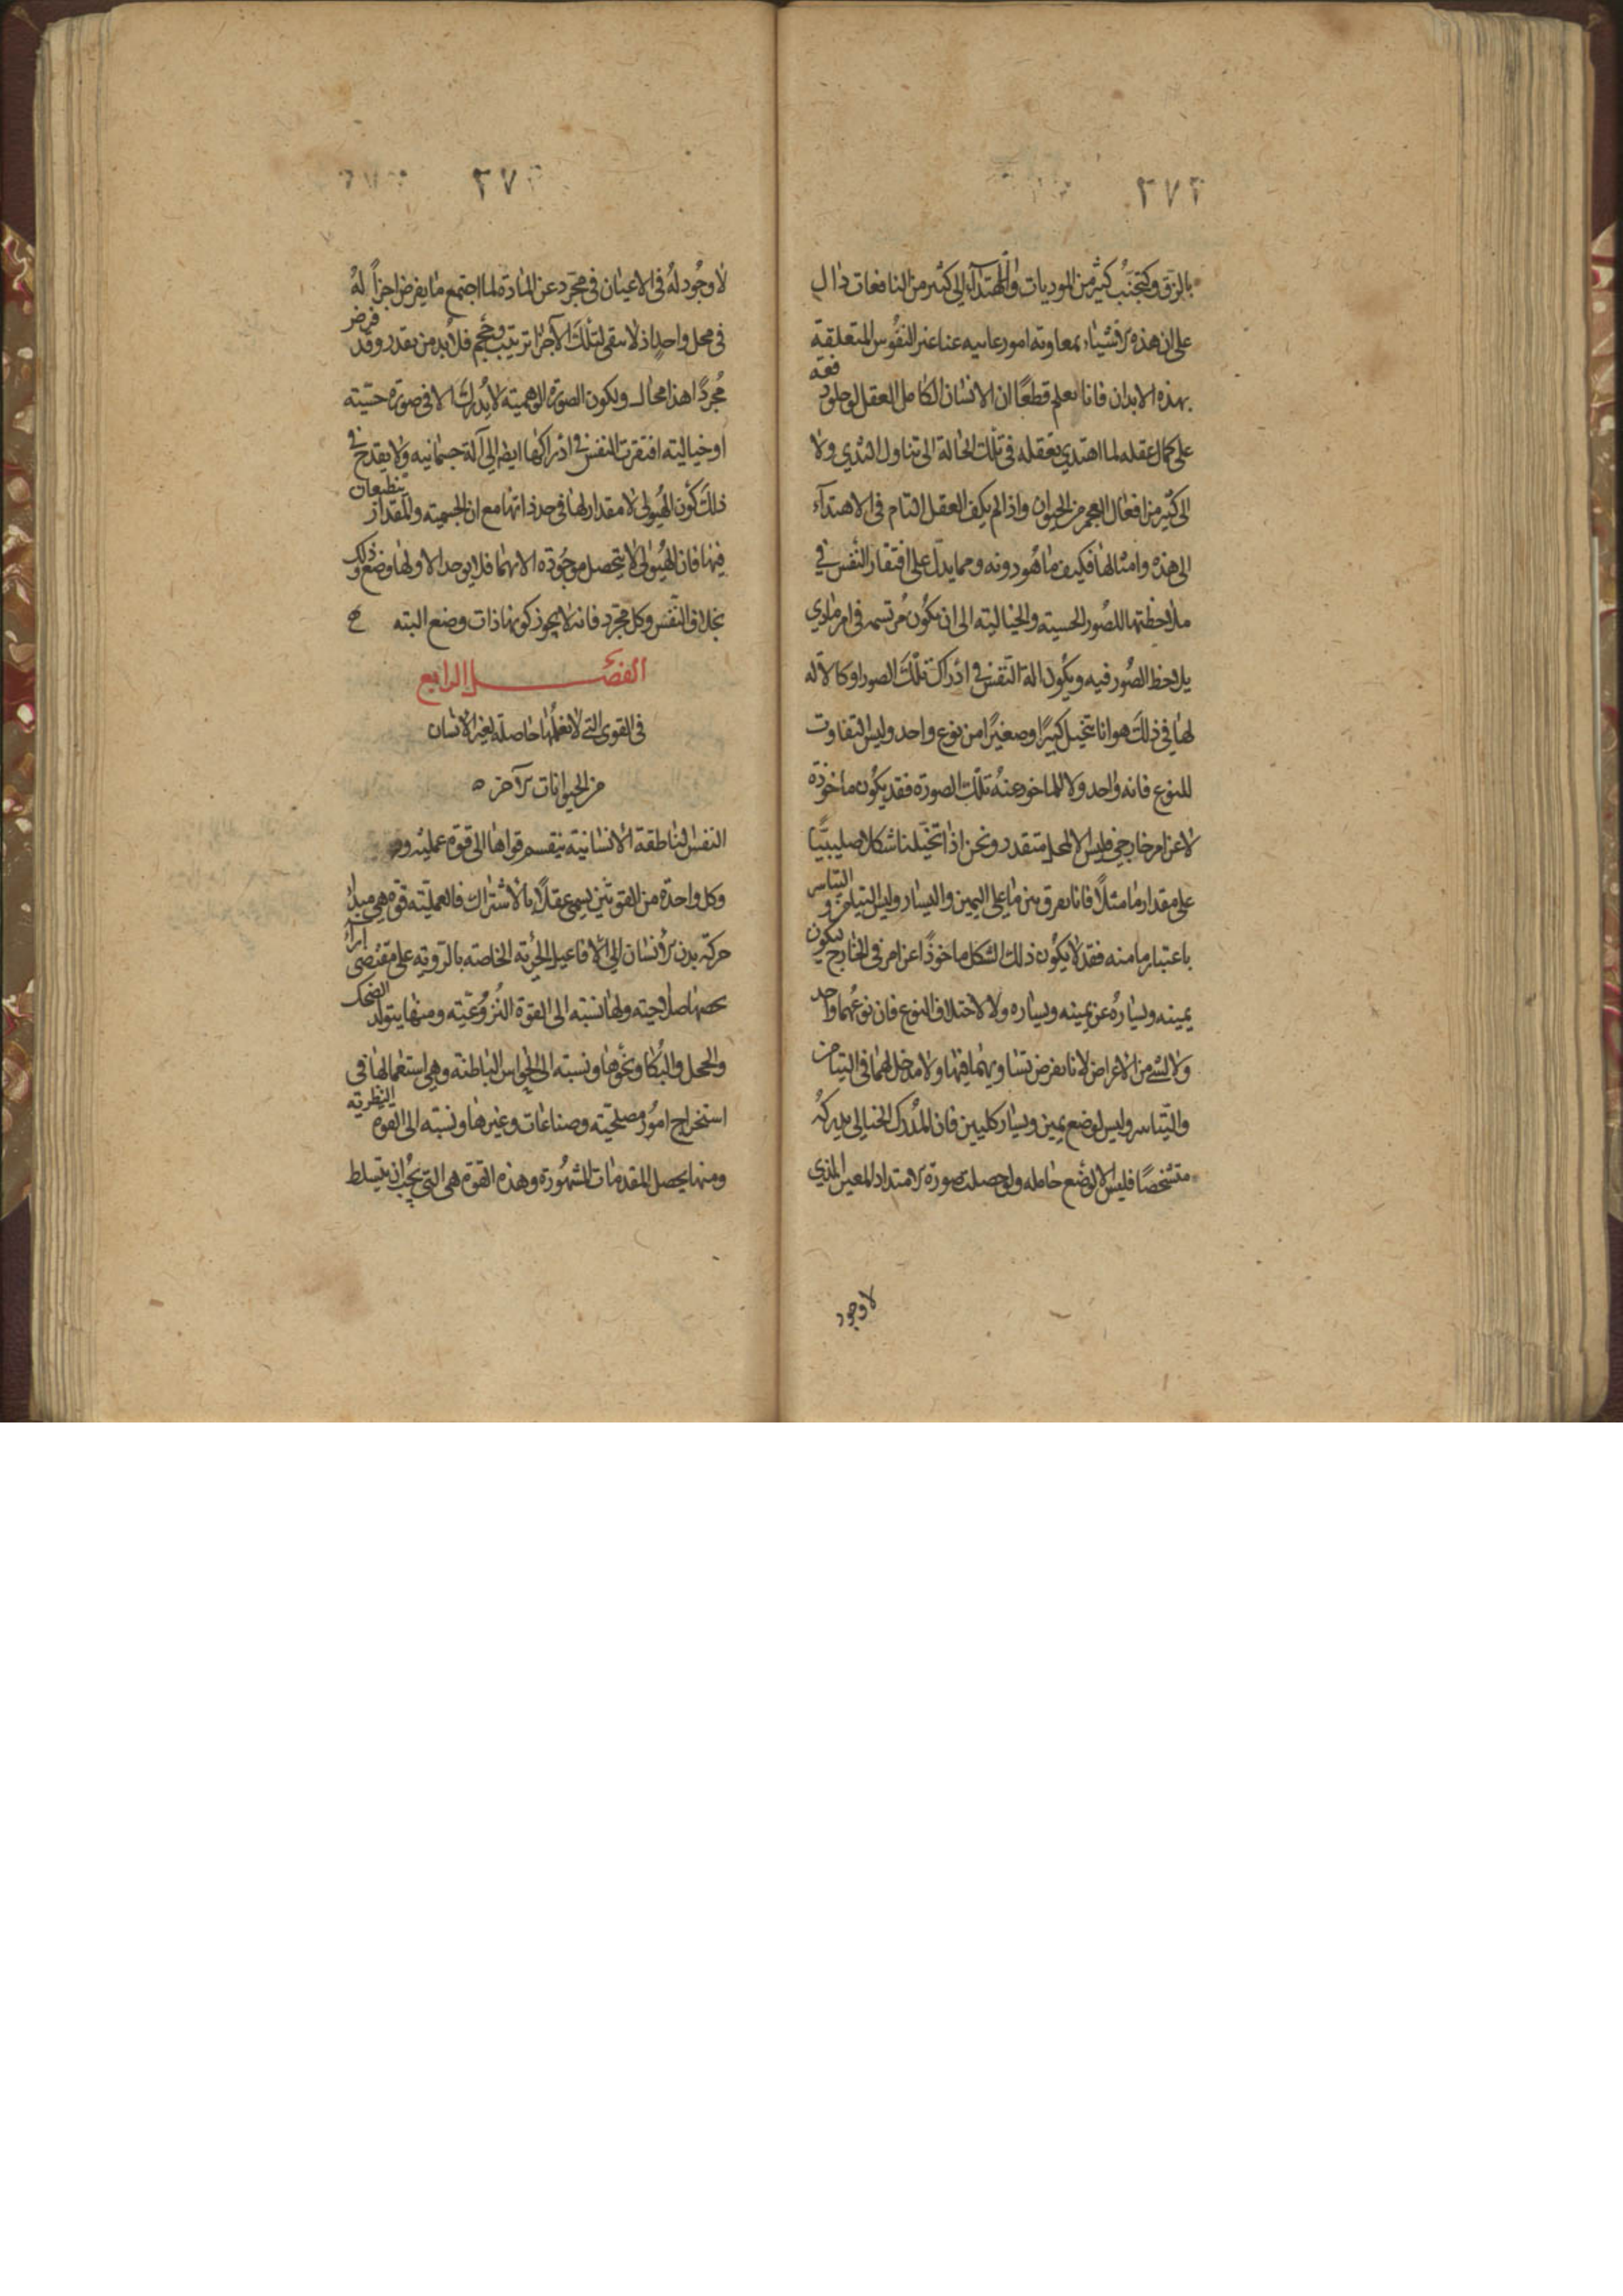 ٢٧٢
بالزق وكتجنب كثير من الموديات والاهتداء الى كثير من النافعات دال
على ان هذه الاشياء بمعاونة امور غايبه عنا عن النفوس المتعلقة
بهذه الابدان فانا نعلم قطعا ان الانسان الكامل العقل لو خلو دفعه
على كمال عقله لما اهتدي بعقله في تلك الحالة الى تناول الثدي ولا
الى كثير من افعال العجم من الحيوان واذا لم يكف العقل التام في الاهتداء
الى هذه وامثالها فكيف ما هو دونه ومما يدل على افتقار النفس في
ملاحظتها للصور الحسيته والخياليته الى ان يكون مرتسمه في امر مادي
يلاحظ الصور فيه ويكون اله النفس في ادراك تلك الصور او كالاله
لها في ذلك هو انا نتخيل كبيرا وصغيرا من نوع واحد وليس التفاوت
للنوع فانه واحد ولا للماخوذ عنه تلك الصورة فقد يكون ماخوذة
لا عن امر خارجي فليس الا لمحل متقدر ونحن اذا تخيلنا شكلا صليبيا
على مقدار ما مثلا فانا نفرق بين ما على اليمين واليسار وليس التيامن و التياسر
باعتبار ما منه فقد لا يكون ذلك الشكل ماخوذا عن امر في الخارج ليكون
يمينه ويساره عن يمينه ويساره ولا لاختلاف النوع فان نوعهما واحد
ولا لشي من الاعراض لانا نفرض تساويهما فيها ولا مدخل لهما في التيامن
والتياسر وليس لوضع يمين ويسار كليين فان المدرك الخيالي يدركه
متشخصا فليس الا لوضع حامله ولو حصلت صورة الامتداد المعين الذي
لا وجود
٢٧٣
لا وجود له في الاعيان في مجرد عن المادة لما اجتمع ما يفرض اجزاً له
في محل واحد اذ لا يبقى لتلك الاجزا ترتيب وحجم فلا بد من تقدر وقد فرض
مجردا هذا محال ويكون الصورة الوهميته لا يدرك الا في صورة حسيته
او خياليته افتقرت النفس في ادراكها ايضا الى آلة جسمانيه ولا يقدح في
ذلك كون الهيولى لا مقدار لها في حد ذاتها مع ان الجسميته والمقدار ينطبعان
فيها فان الهيولى لا يتحصل موجوده الا بهما فلا يوجد الا ولها وضع وذلك
بخلاف النفس وكل مجرد فانه لا يجوز كونها ذات وضع البته
الفصل الرابع
في القوى التي لا نعلمها حاصلة لغير الانسان
من الحيوانات الاخر ٥
النفس الناطقة الانسانية ينقسم قواها الى قوة عمليه و
وكل واحدة من القوتين يسمى عقلاً بالاشتراك فالعمليّته قوة هي مبدا
حركة بدن الانسان الى الافاعيل الجزية الخاصه بالرويه على مقتضى آراء
تخصها صلاحيته ولها نسبه الى القوة النزوعيّته ومنها يتولد الضحك
والخجل والبكا ونحوها ونسبته الى الحواس الباطنة وهي استعمالها في
استخراج امور مصلحيّته وصناعات وغيرها ونسبه الى القوة النظريه
ومنها يحصل المقدمات المشهورة وهذه القوة هي التي يجب ان يتسلط